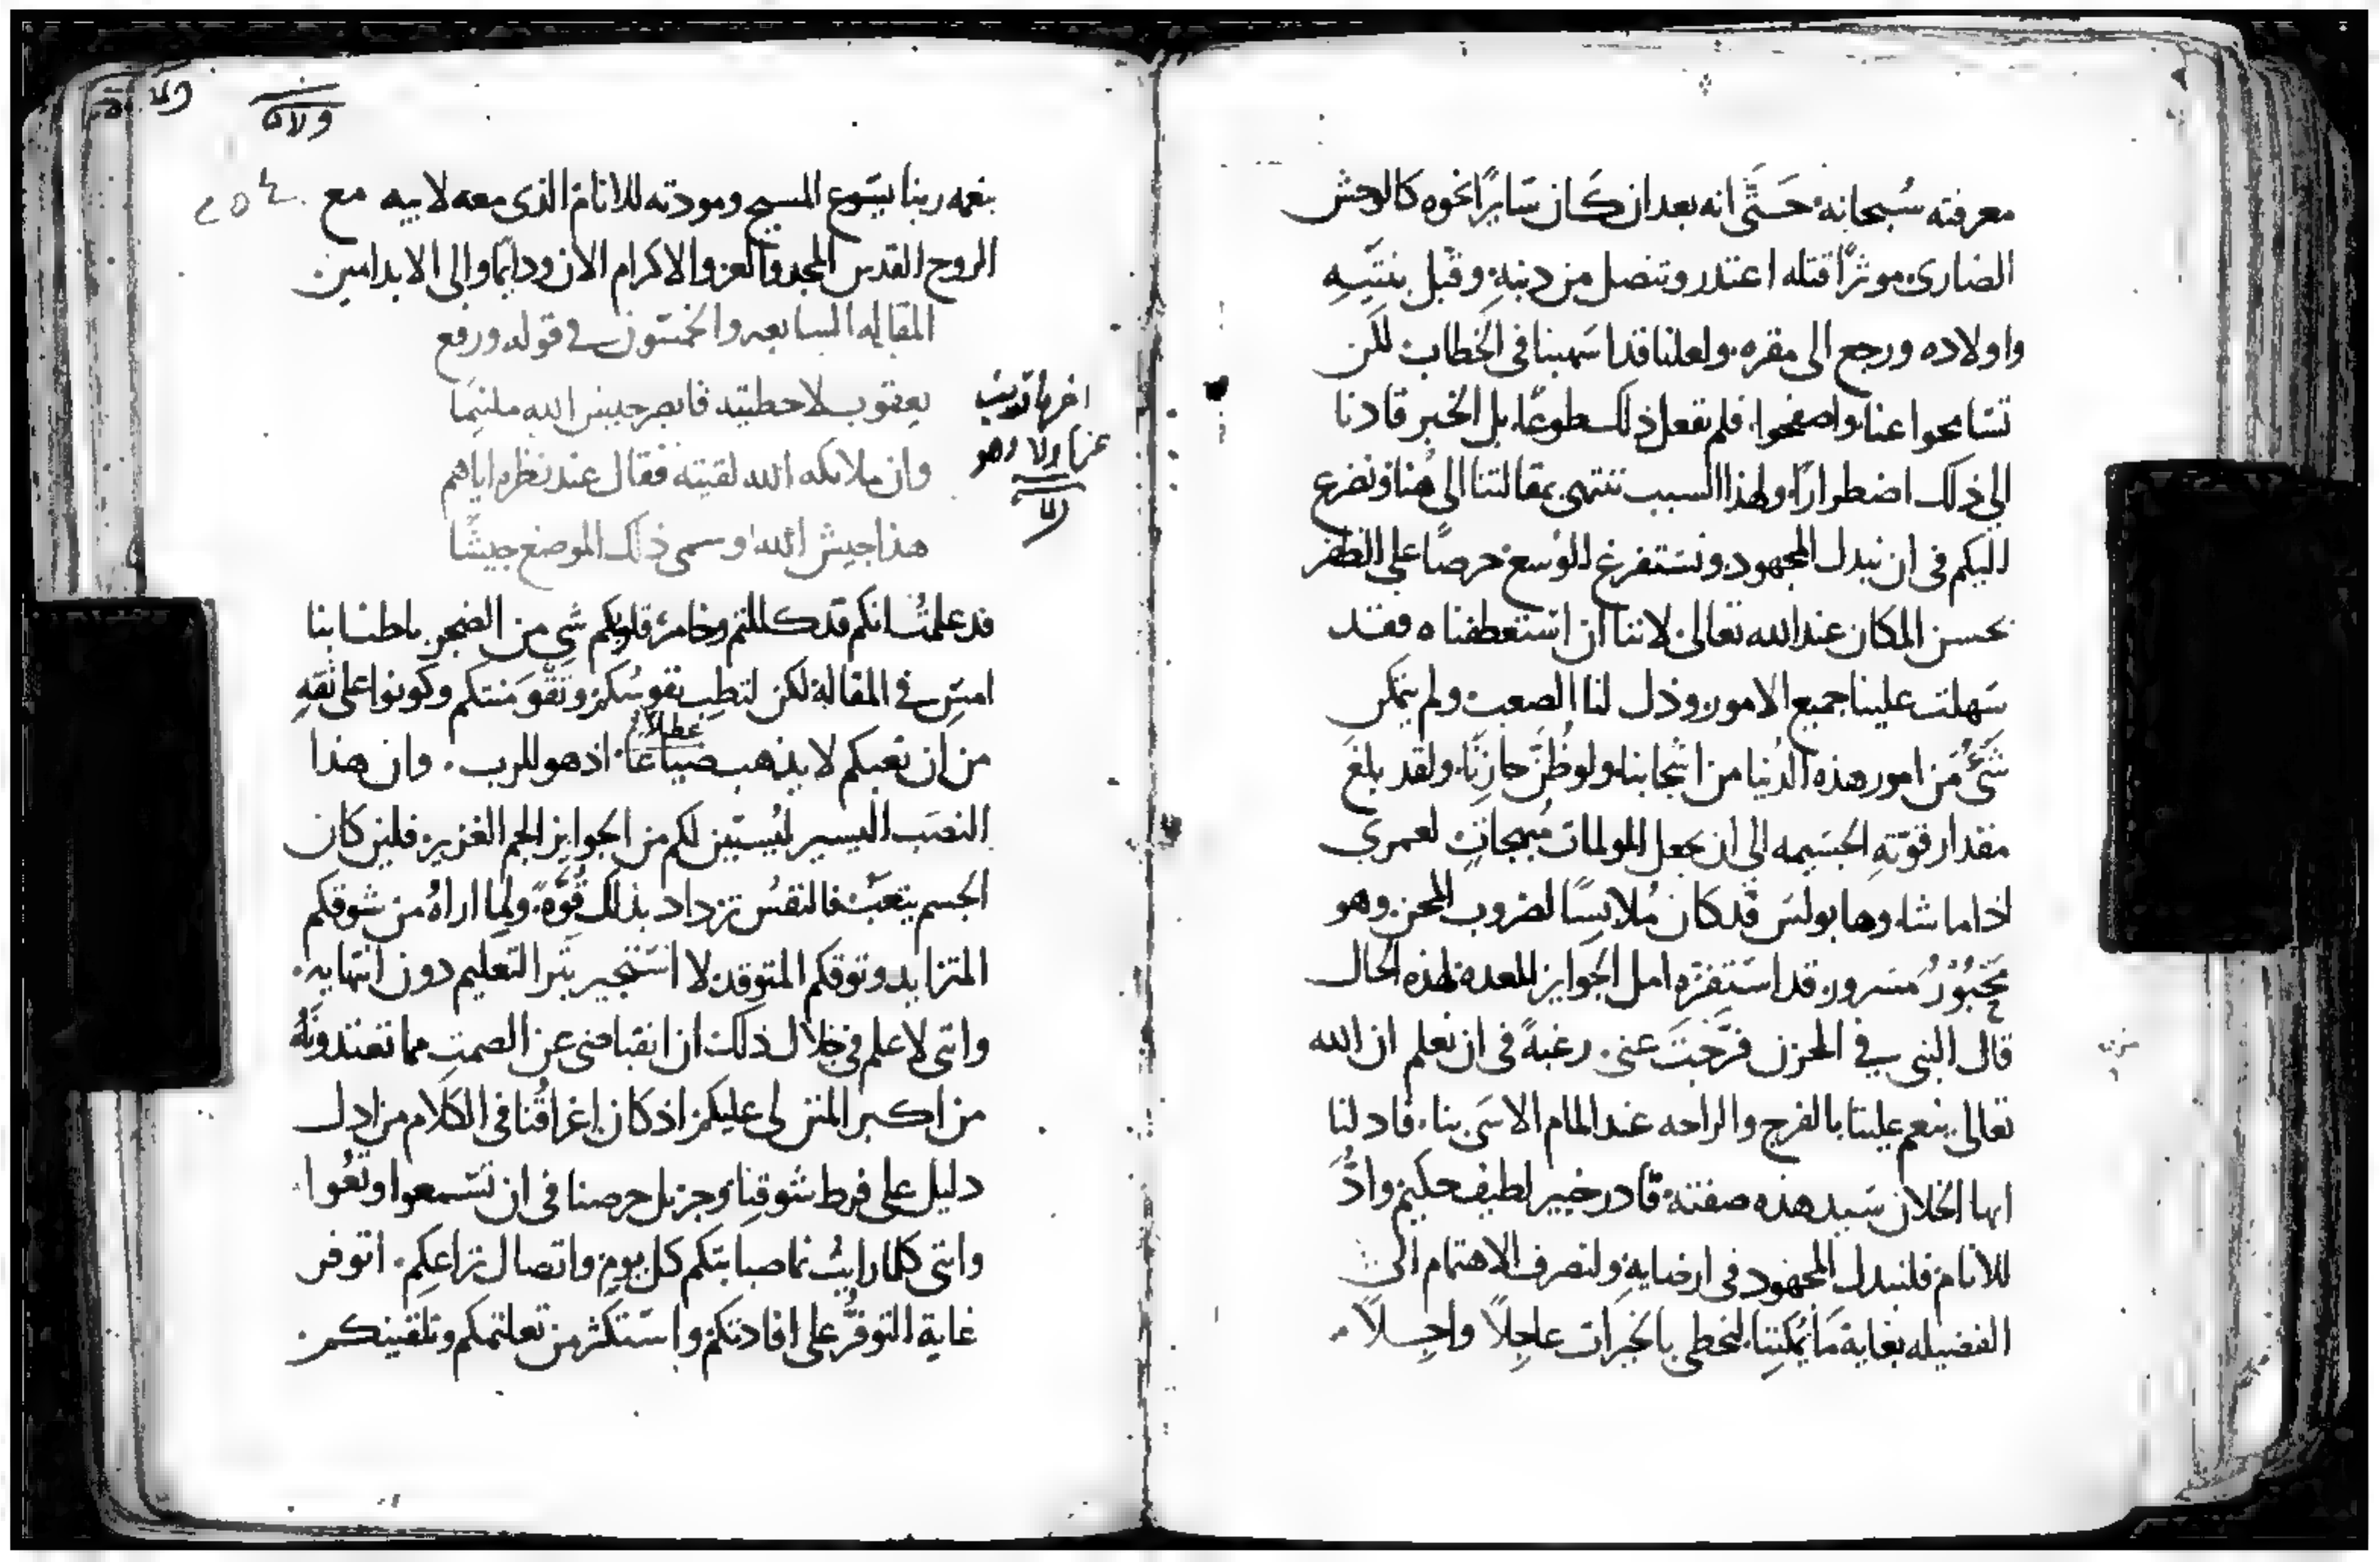 معرفته سُبحانه حَتَّى انه بعد ان كَان سَايرًا نحوه كالوحش
الضارى موثرًا قتله اعتدر وتنصل من دنبهِ وقبل بنتَيهِ
واولاده ورجع الى مقره ولعلنا قد اسَهبنا فى الخطاب لكن
تسَامحوا عنا واصفحوا فلم نفعل ذلك طوعًا بل الخبر قادنا
الى ذلك اضطرارًا ولهذا السبب ننتهى بمقالتنا الى هُنا ونضرع
اليكم فى ان نبدل المجهود ونستفرغ الوُسع حرصًا على الظفر
بحسن المكان عند الله تعالى لاننا ان اسَتعطفناه فقد
سَهلت علينا جميع الامور وذل لنا الصعب ولم يتمكن
شَىٌ من امور هذه الدُنيا من اشجابنا ولو ظُنَّ حازنًا ولقد بلغَ
مقدار قوّتهِ الجسَيمه الى ان يجعل المولمات مُبهجاتٍ لعمرى
اذا ما شا وها بولسَ قد كان مُلابسًا لضروب المحن وهو
مَحْبُوْرٌ مَسَرور قد اسَتفزّه امل الجوايز المعده لهذه الحال
قال النبى فى الحزن فَرَّجتَ عنى رغبةً فى ان نعلم ان الله
تعالى ينعم علينا بالفرج والراحه عند المام الاسَى بنا قاد لنا
ايها الخلان سَيد هذه صفته قادر خبير لطيف حكيم وادٌّ
للانام فلنبدل المجهود فى ارضايهِ ولنصرف الاهتمام الى
الفضيله بغاية مَا يُمكننا لنحظى بالخيرات عاجِلاً واجِلاً
بنعمه ربنا يسَوع المسيح ومودته للانام الذى معه لابيه مع
الروح القدس المجد والعز والاكرام الان ودايمًا والى الابد امين
المقاله السابعه والخمسَون فى قوله ورفع
يعقوب لاحظيته فابصر جيش الله ملتيمًا
وان ملائكه الله لقيته فقال عند نظره اياهم
هذا جيش الله وسمى ذلك الموضع جيشًا
قد علمتُ انكم قد كللتم وخامرَ قلوبكم شى من الضجر باطنابنا
امسِ فى المقالة لكن لتطب نفوسُكم وتَقْوَ مَنتكم وكونوا على ثقهٍ
عطلاً
من ان تعبكم لا يذهب ضياعًا اذ هو للرب وان هذا
النصَب اليسير ليُسبّبن لكم من الجوايز الجم الغزير فلين كان
الجسم يتعَبُ فالنفسُ تزداد بذلك قُوَّةً ولِما اراهُ من شوقكم
المتزايد وتوقكم المتوقد لا اسَتجيز بتر التعليم دون انتهايه
وانى لاعلم فى خِلال ذلك ان انقباضى عن الصمت مما تعتدونَهُ
من اكبر المنن لى عليكم اذ كان اغراقُنا فى الكَلام من ادل
دليل على فرط شوقنا وجزيل حرصنا فى ان تسَمعوا وتَعُوا
وانى كلما رايتُ نما صبابتكم كل يومٍ واتصال نزاعِكم اتوفر
غاية التوفّر على افادتكم واسَتكثر من تعلىمكم وتلقينكم